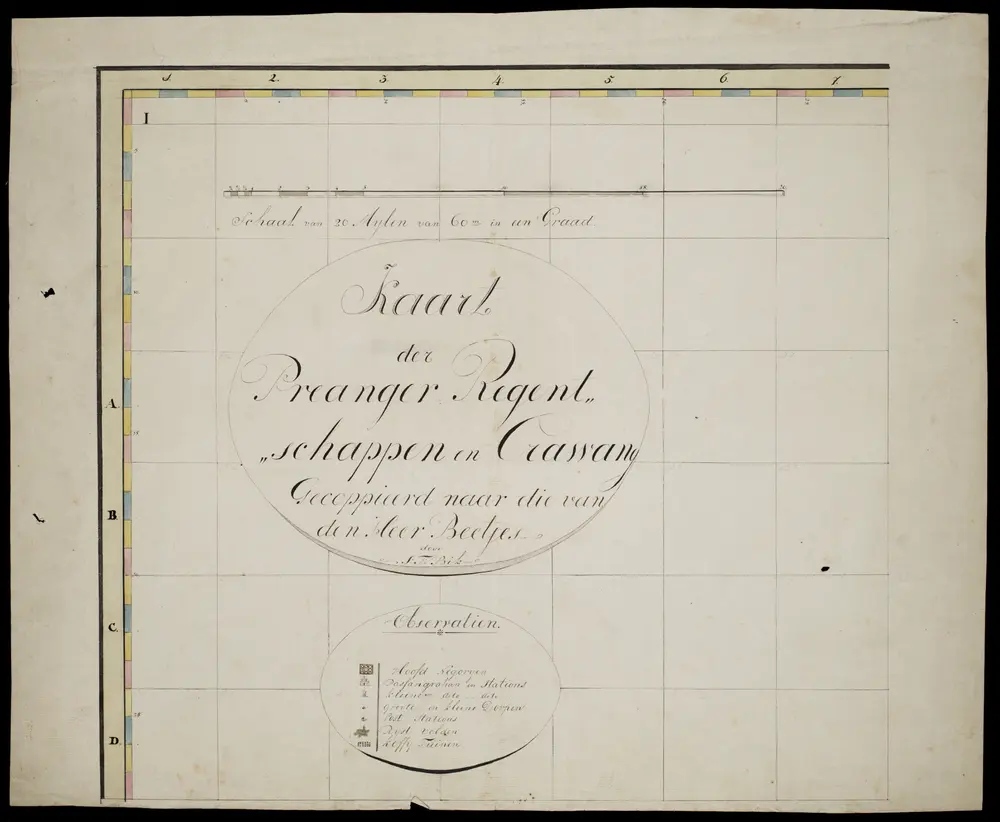 1. 2. 3. 4. 5. 6. 7.
I
Schaal van 20 Mylen van 60 in een Graad.
Kaart
der
Preanger Regent„
A.
„schappen en Crawang
Gecoppieerd naar die van
B.
den Heer Beetjes
door
C.
Observatien.
Hoofd Negoryen
en Stations
kleine dito dito
groote en kleine Dorpen
Post Stations
Ryst velden
D.
Koffy Tuinen